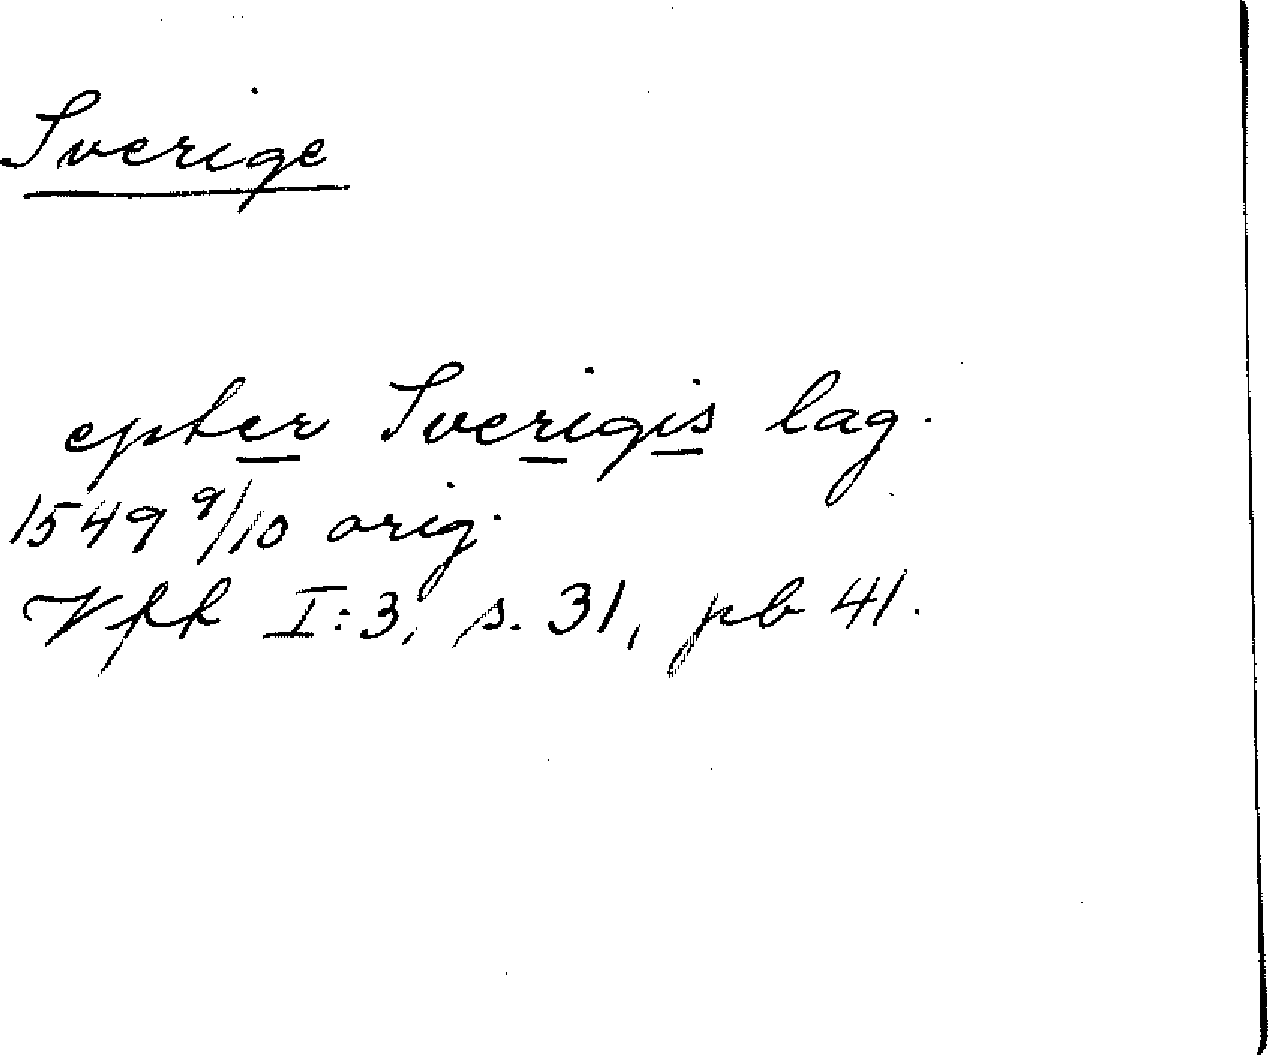 Sverige
epter Sverigis lag.
1549 9/10 orig.
Vfk I:3, s. 31, pb 41.